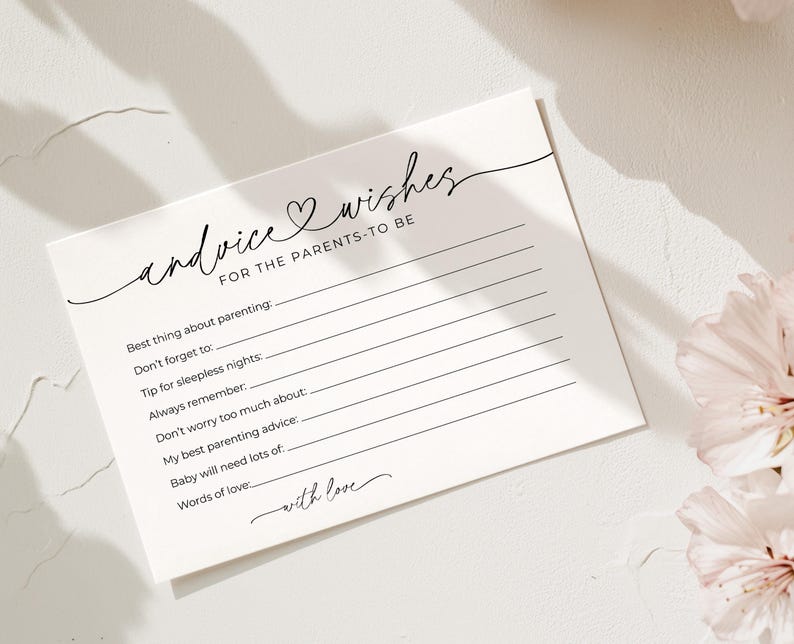 andvice ♡ wishes
FOR THE PARENTS-TO BE
Best thing about parenting:
Don't forget to:
Tip for sleepless nights:
Always remember:
Don't worry too much about:
My best parenting advice:
Baby will need lots of:
Words of love:
with love